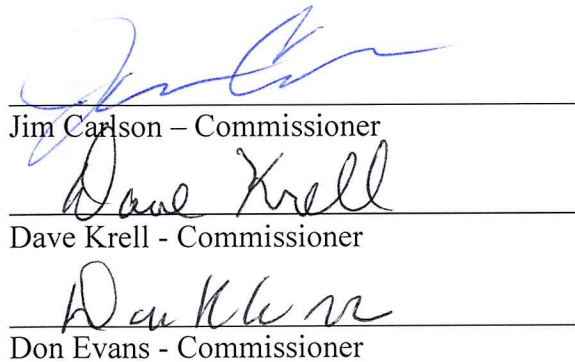 Jim Carlson – Commissioner
Dave Krell
Dave Krell - Commissioner
Don Evans - Commissioner